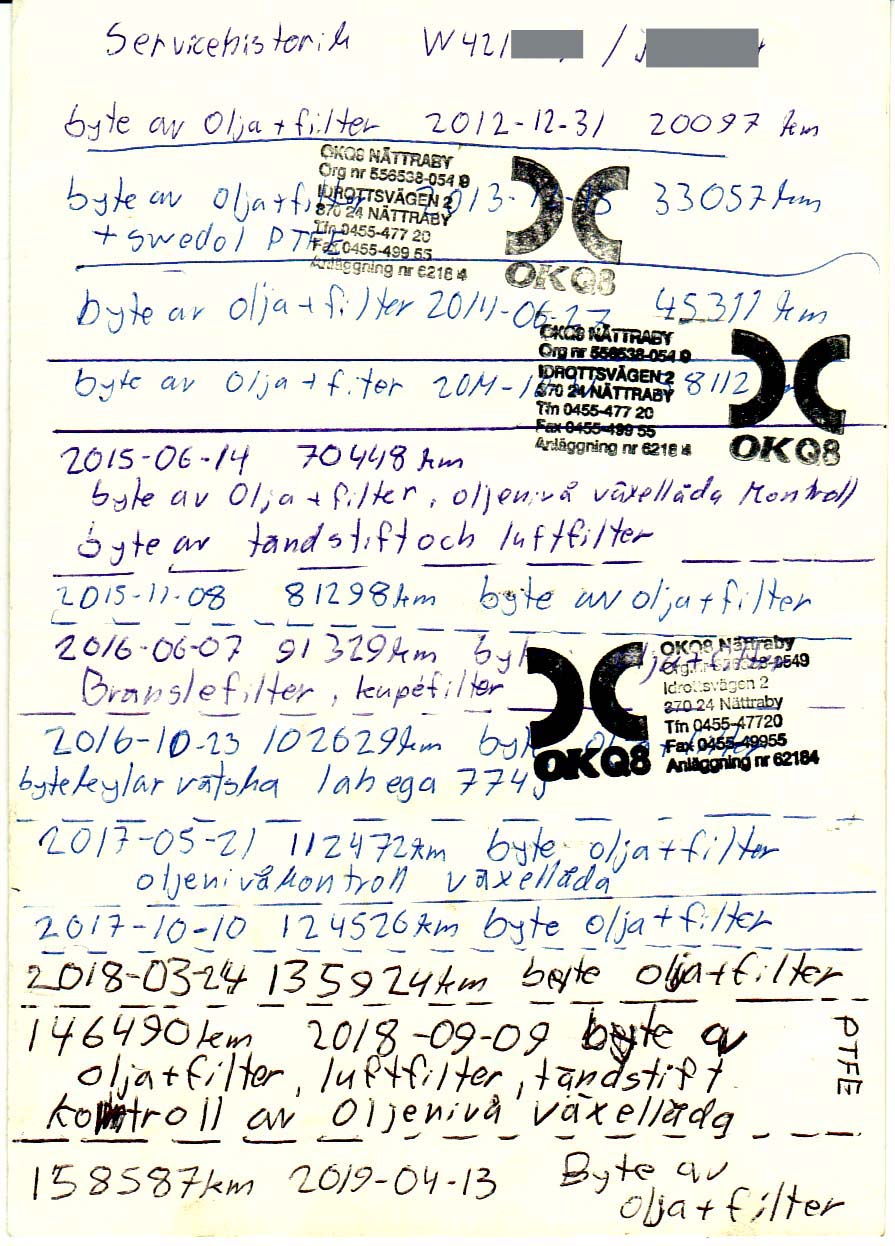 Servicehistorik W421 /
byte av olja + filter 2012-12-31 20097 km
OKQ8 NÄTTRABY
Org nr 556538-054 9
IDROTTSVÄGEN 2
370 24 NÄTTRABY
Tfn 0455-477 20
Fax 0455-499 55
Anläggning nr 6218 4
OKQ8
byte av olja + filter 2013-12- 33057 km
+ swedol PTFE
byte av olja + filter 2014-06-27 45311 km
OKQ8 NÄTTRABY
Org nr 556538-054 9
IDROTTSVÄGEN 2
370 24 NÄTTRABY
Tfn 0455-477 20
Fax 0455-499 55
Anläggning nr 6218 4
OKQ8
byte av olja + filter 8112
2015-06-14 70448 km
byte av olja + filter, oljenivå växellåda kontroll
byte av tändstift och luftfilter
2015-11-08 81298 km byte av olja + filter
2016-06-07 91329 km byte olja + filter
Bränslefilter, kupéfilter
OKQ8
OKQ8 Nättraby
Idrottsvägen 2
370 24 Nättraby
Tfn 0455-47720
Fax 0455-49955
Anläggning nr 62184
2016-10-23 102629 km byte
byte kylar vätska lahega 774
2017-05-21 112472 km byte olja + filter
oljenivåkontroll växellåda
2017-10-10 124526 km byte olja + filter
2018-03-24 135924 km byte olja + filter
146490 km 2018-09-09 byte av
olja + filter, luftfilter, tändstift
kontroll av oljenivå växellåda
PTFE
158587 km 2019-04-13 Byte av
olja + filter